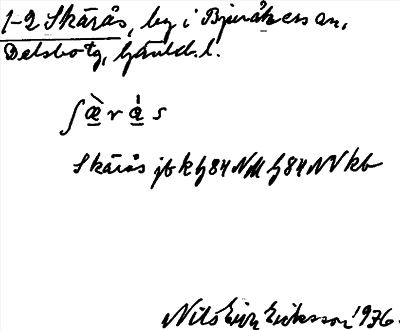 1-2 Skärås, by i Bjuråkers sn,
Delsbo tg, Gävlb. l.
ʃæ̀r á s
Skärås jbk h84 NM h84 NV kb
Nils Erik Eriksson 1936.